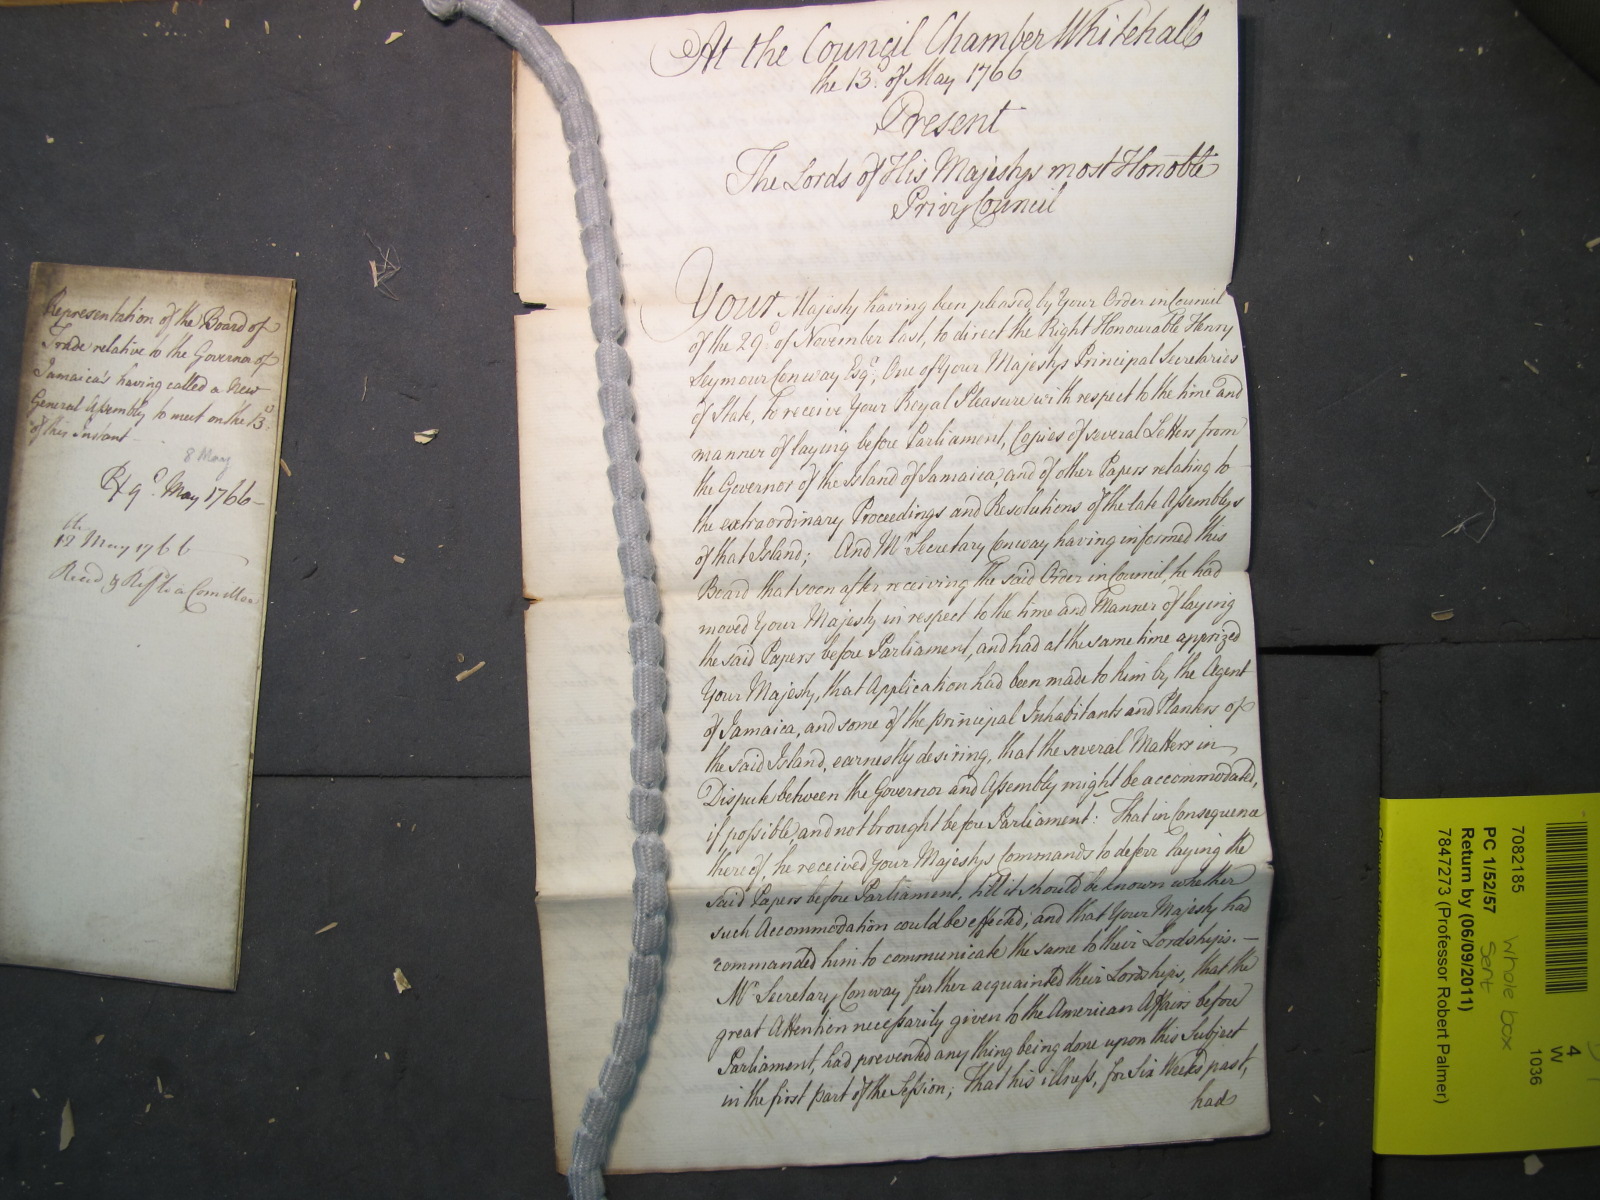 Representation of the Board of
Trade relative to the Governor of
Jamaica's having called a New
General Assembly to meet on the 13th
of this Instant
8 May
Rx 9th May 1766
12th May 1766
Read & Ref'd to a Committee
At the Council Chamber Whitehall
the 13th of May 1766
Present
The Lords of His Majestys most Honoble
Privy Council
Your Majesty having been pleased, by Your Order in Council
of the 29th of November last, to direct the Right Honourable Henry
Seymour Conway Esqr, One of Your Majestys Principal Secretaries
of State, to receive Your Royal Pleasure with respect to the time and
manner of laying before Parliament, Copies of several Letters from
the Governor of the Island of Jamaica, and of other Papers relating to
the extraordinary Proceedings and Resolutions of the late Assemblys
of that Island; And Mr Secretary Conway having informed this
Board that soon after receiving the said Order in Council, he had
moved Your Majesty in respect to the time and Manner of laying
the said Papers before Parliament, and had at the same time apprized
Your Majesty, that Application had been made to him by the Agent
of Jamaica, and some of the principal Inhabitants and Planters of
the said Island, earnestly desiring, that the several Matters in
Dispute between the Governor and Assembly might be accommodated,
if possible and not brought before Parliament: That in Consequence
thereof, he received Your Majestys Commands to deferr laying the
said Papers before Parliament, till it should be known whether
such Accommodation could be effected; and that Your Majesty had
commanded him to communicate the same to their Lordships. —
Mr Secretary Conway further acquainted their Lordships, that the
great Attention necessarily given to the American Affairs before
Parliament, had prevented any thing being done upon this Subject
in the first part of the Session; That his illness, for Six Weeks past,
had
7082185
PC 1/52/57
Return by (06/09/2011)
7847273 (Professor Robert Palmer)
whole box
sent
4
W
1036